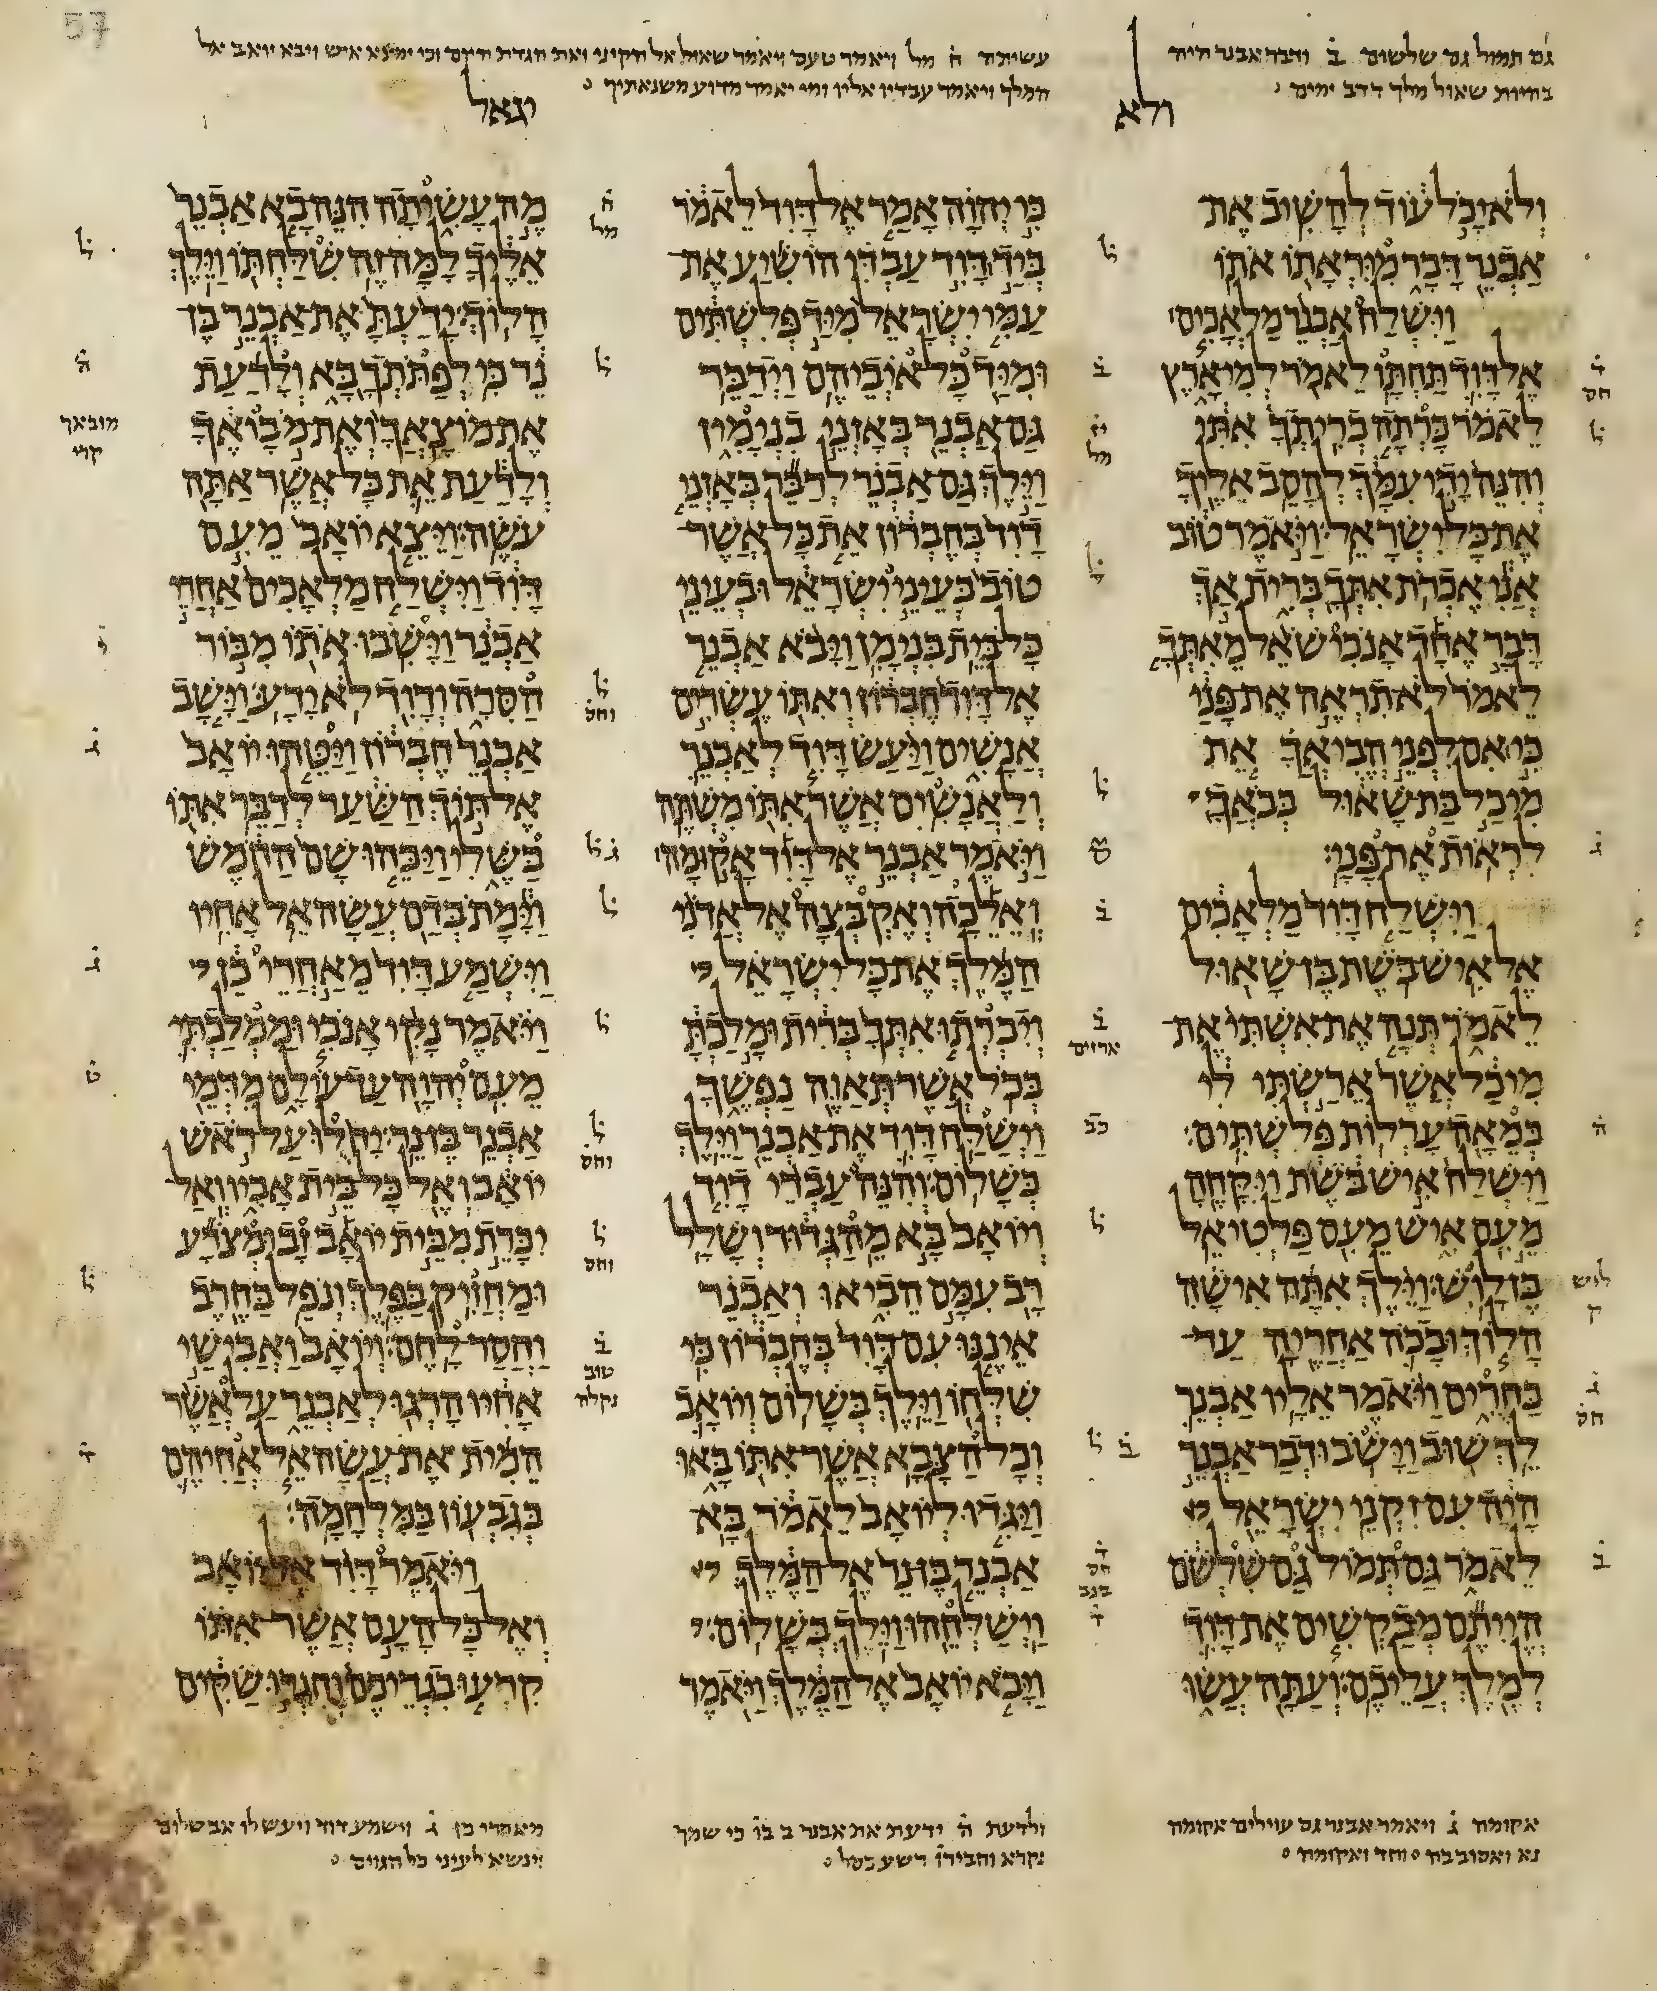 57
גם תמול גם שלשום ב֗ ודבר אבנר היה
בהיות שאול מלך דדב ימים
ולא
עשיתה ה֗ מל ויאמר שאול אל הקיני ואת הגדת היום וכי ימצא איש ויבא יואב אל
המלך ויאמר עבדיו אליו ומי יאמר מדוע משנאתיך
יגאל
ולא יכל עוד להשיב את
אבנר דבר מיראתו אתו
וישלח אבנר מלאכים
אל דוד תחתו לאמר למי ארץ
לאמר כרתה בריתך אתי
והנה ידי עמך להסב אליך
את כל ישראל ויאמר טוב
אני אכרת אתך ברית אך
דבר אחד אנכי שאל מאתך
לאמר לא תראה את פני
כי אם לפני הביאך את
מיכל בת שאול בבאך
לראות את פני
וישלח דוד מלאכים
אל איש בשת בן שאול
לאמר תנה את אשתי את
מיכל אשר ארשתי לי
במאה ערלות פלשתים
וישלח איש בשת ויקחה
מעם איש מעם פלטיאל
בן לוש וילך אתה אישה
הלוך ובכה אחריה עד
בחרים ויאמר אליו אבנר
לך שוב וישב ודבר אבנר
היה עם זקני ישראל
לאמר גם תמול גם שלשם
הייתם מבקשים את דוד
למלך עליכם ועתה עשו
ד֗
חס
ל֗
ג֗
ה֗
ליש
ק
ג֗
חס֗
ב֗
כי יהוה אמר אל דוד לאמר
ביד דוד עבדי הושיע את
עמי ישראל מיד פלשתים
ומיד כל איביהם וידבר
גם אבנר באזני בנימין
וילך גם אבנר לדבר באזני
דוד בחברון את כל אשר
טוב בעיני ישראל ובעיני
כל בית בנימן ויבא אבנר
אל דוד חברון ואתו עשרים
אנשים ויעש דוד לאבנר
ולאנשים אשר אתו משתה
ויאמר אבנר אל דוד אקומה
ואלכה ואקבצה אל אדני
המלך את כל ישראל
ויכרתו אתך ברית ומלכת
בכל אשר תאוה נפשך
וישלח דוד את אבנר וילך
בשלום והנה עבדי דוד
ויואב בא מהגדוד ושלל
רב עמם הביאו ואבנר
איננו עם דוד בחברון כי
שלחו וילך בשלום ויואב
וכל הצבא אשר אתו באו
ויגדו ליואב לאמר בא
אבנר בן נר אל המלך
וישלחהו וילך בשלום
ויבא יואב אל המלך ויאמר
ל֗
ב֗
יז֗
מל
ל֗
ל֗
ב֗
ב֗
ארזים
כב֗
ל֗
ב֗
ל֗
ד֗
חס
בנב
ד֗
מה עשיתה הנה בא אבנר
אליך למה זה שלחתו וילך
הלוך ידעת את אבנר בן
נר כי לפתתך בא ולדעת
את מוצאך ואת מבואך
ולדעת את כל אשר אתה
עשה ויצא יואב מעם
דוד וישלח מלאכים אחרי
אבנר וישבו אתו מבור
הסרה ודוד לא ידע וישב
אבנר חברון ויטהו יואב
אל תוך השער לדבר אתו
בשלי ויכהו שם החמש
וימת בדם עשהאל אחיו
וישמע דוד מאחרי כן
ויאמר נקי אנכי וממלכתי
מעם יהוה עד עולם מדמי
אבנר בן נר יחלו על ראש
יואב ואל כל בית אביו ואל
יכרת מבית יואב זב ומצרע
ומחזיק בפלך ונפל בחרב
וחסר לחם ויואב ואבישי
אחיו הרגו לאבנר על אשר
המית את עשהאל אחיהם
בגבעון במלחמה
ויאמר דוד אל יואב
ואל כל העם אשר אתו
קרעו בגדיכם וחגרו שקים
ה֗
מל
ל֗
ל֗
וחס֗
ג֗ ל֗
ל֗
ל֗
ל֗
וחס֗
ל֗
וחס
ב֗
טוב
נקלה
ל֗
ה֗
מובאך
קרי
ג֗
ג֗
ט֗
ל֗
ד֗
אקומה ג֗ ויאמר אבנר גם עוילים אקומה
נא ואסובבה וחד ואקומה
ולדעת ה֗ ידעת את אבנר ב בו֗ כי שמך
נקרא וחבירו֗ רשע כסל
מאחרי כן ג֗ וישמע דוד ויעש לו אבשלום
וינשא לעיני כל הגוים